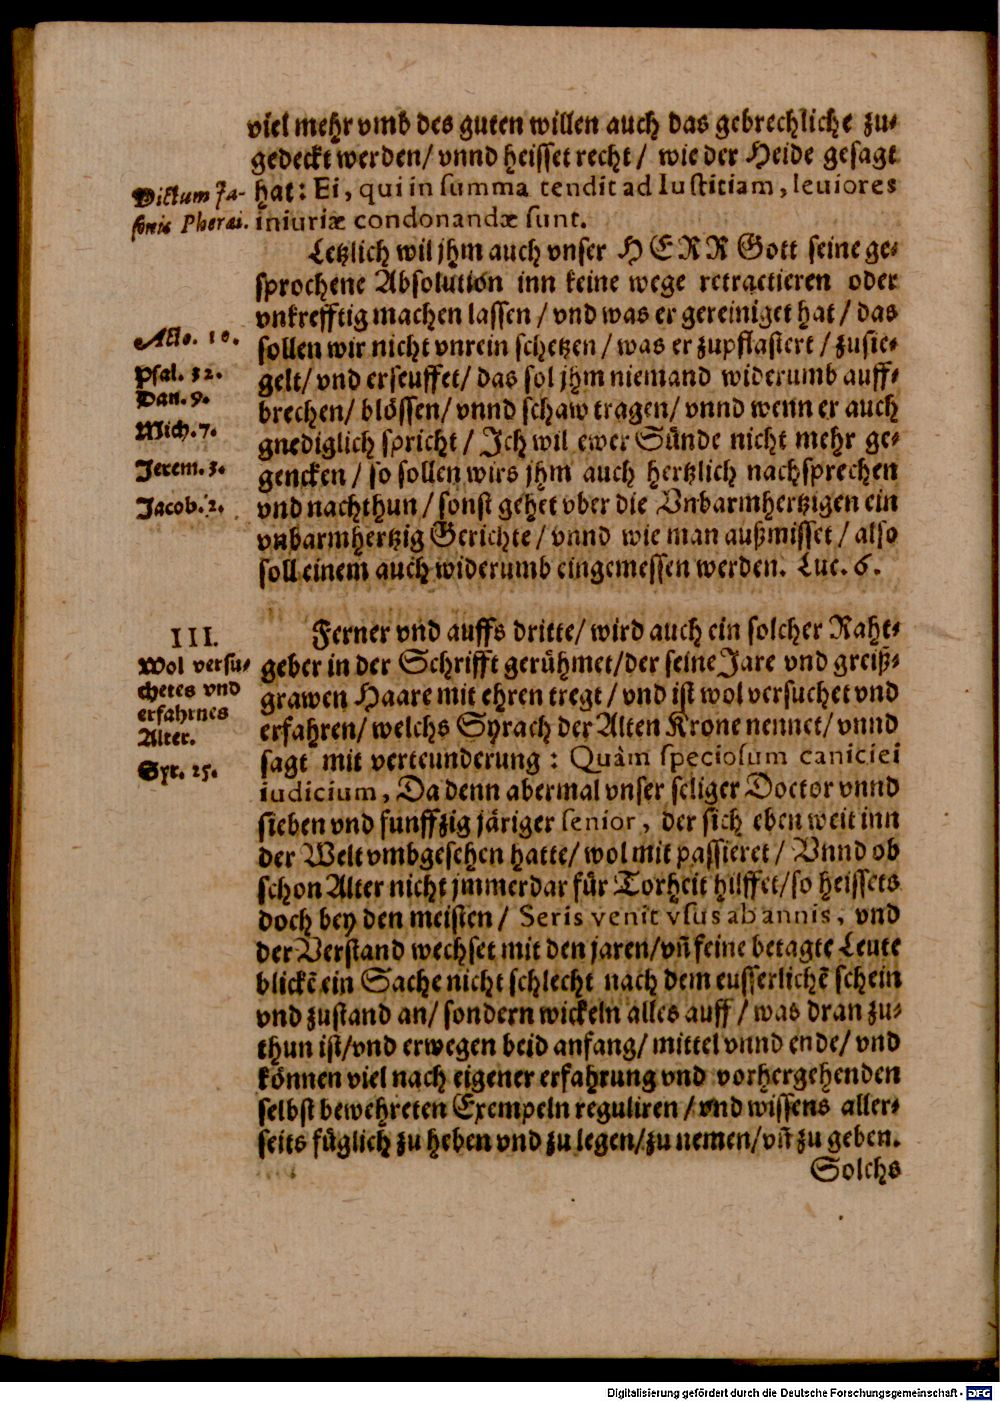 viel mehr vmb des guten willen auch das gebrechliche zu⸗
gedeckt werden/ vnnd heisset recht/ wie der Heide gesagt
Dictum Ja-
sonis Pherai.
hat: Ei, qui in summa tendit ad Iustitiam, leuiores
iniuriæ condonandæ sunt.
Letzlich wil jhm auch vnser HERR Gott seine ge⸗
sprochene Absolution inn keine wege retractieren oder
vnkrefftig machen lassen/ vnd was er gereiniget hat/ das
Acto. 10.
sollen wir nicht vnrein schetzen/ was er zupflastert/ zusie⸗
Psal. 32.
gelt/ vnd erseuffet/ das sol jhm niemand widerumb auff⸗
Dan. 9.
brechen/ blössen/ vnnd schaw tragen/ vnnd wenn er auch
Mich. 7.
gnediglich spricht/ Ich wil ewer Sünde nicht mehr ge⸗
Jerem. 3.
gencken/ so sollen wirs jhm auch hertzlich nachsprechen
Jacob. 2.
vnd nachthun/ sonst gehet vber die Vnbarmhertzigen ein
vnbarmhertzig Gerichte/ vnnd wie man außmisset/ also
soll einem auch widerumb eingemessen werden. Luc. 6.
III.
Wol versu⸗
chetes vnd
erfahrnes
Alter.
Syr. 25.
Ferner vnd auffs dritte/ wird auch ein solcher Raht⸗
geber in der Schrifft gerühmet/ der seine Jare vnd greiß⸗
grawen Haare mit ehren tregt/ vnd ist wol versuchet vnd
erfahren/ welchs Syrach der Alten Krone nennet/ vnnd
sagt mit verwunderung: Quàm speciosum caniciei
iudicium, Da denn abermal vnser seliger Doctor vnnd
sieben vnd funffzig järiger senior, der sich eben weit inn
der Welt vmbgesehen hatte/ wol mit passieret/ Vnnd ob
schon Alter nicht jmmerdar für Torheit hilffet/ so heissets
doch bey den meisten/ Seris venit vsus ab annis, vnd
der Verstand wechset mit den jaren/ vñ feine betagte Leute
blickē ein Sache nicht schlecht nach dem eusserlichē schein
vnd zustand an/ sondern wickeln alles auff/ was dran zu⸗
thun ist/ vnd erwegen beid anfang/ mittel vnnd ende/ vnd
können viel nach eigener erfahrung vnd vorhergehenden
selbst bewehreten Exempeln reguliren/ vnd wissens aller⸗
seits füglich zu heben vnd zu legen/ zu nemen/ vñ zu geben.
Solchs
Digitalisierung gefördert durch die Deutsche Forschungsgemeinschaft - DFG